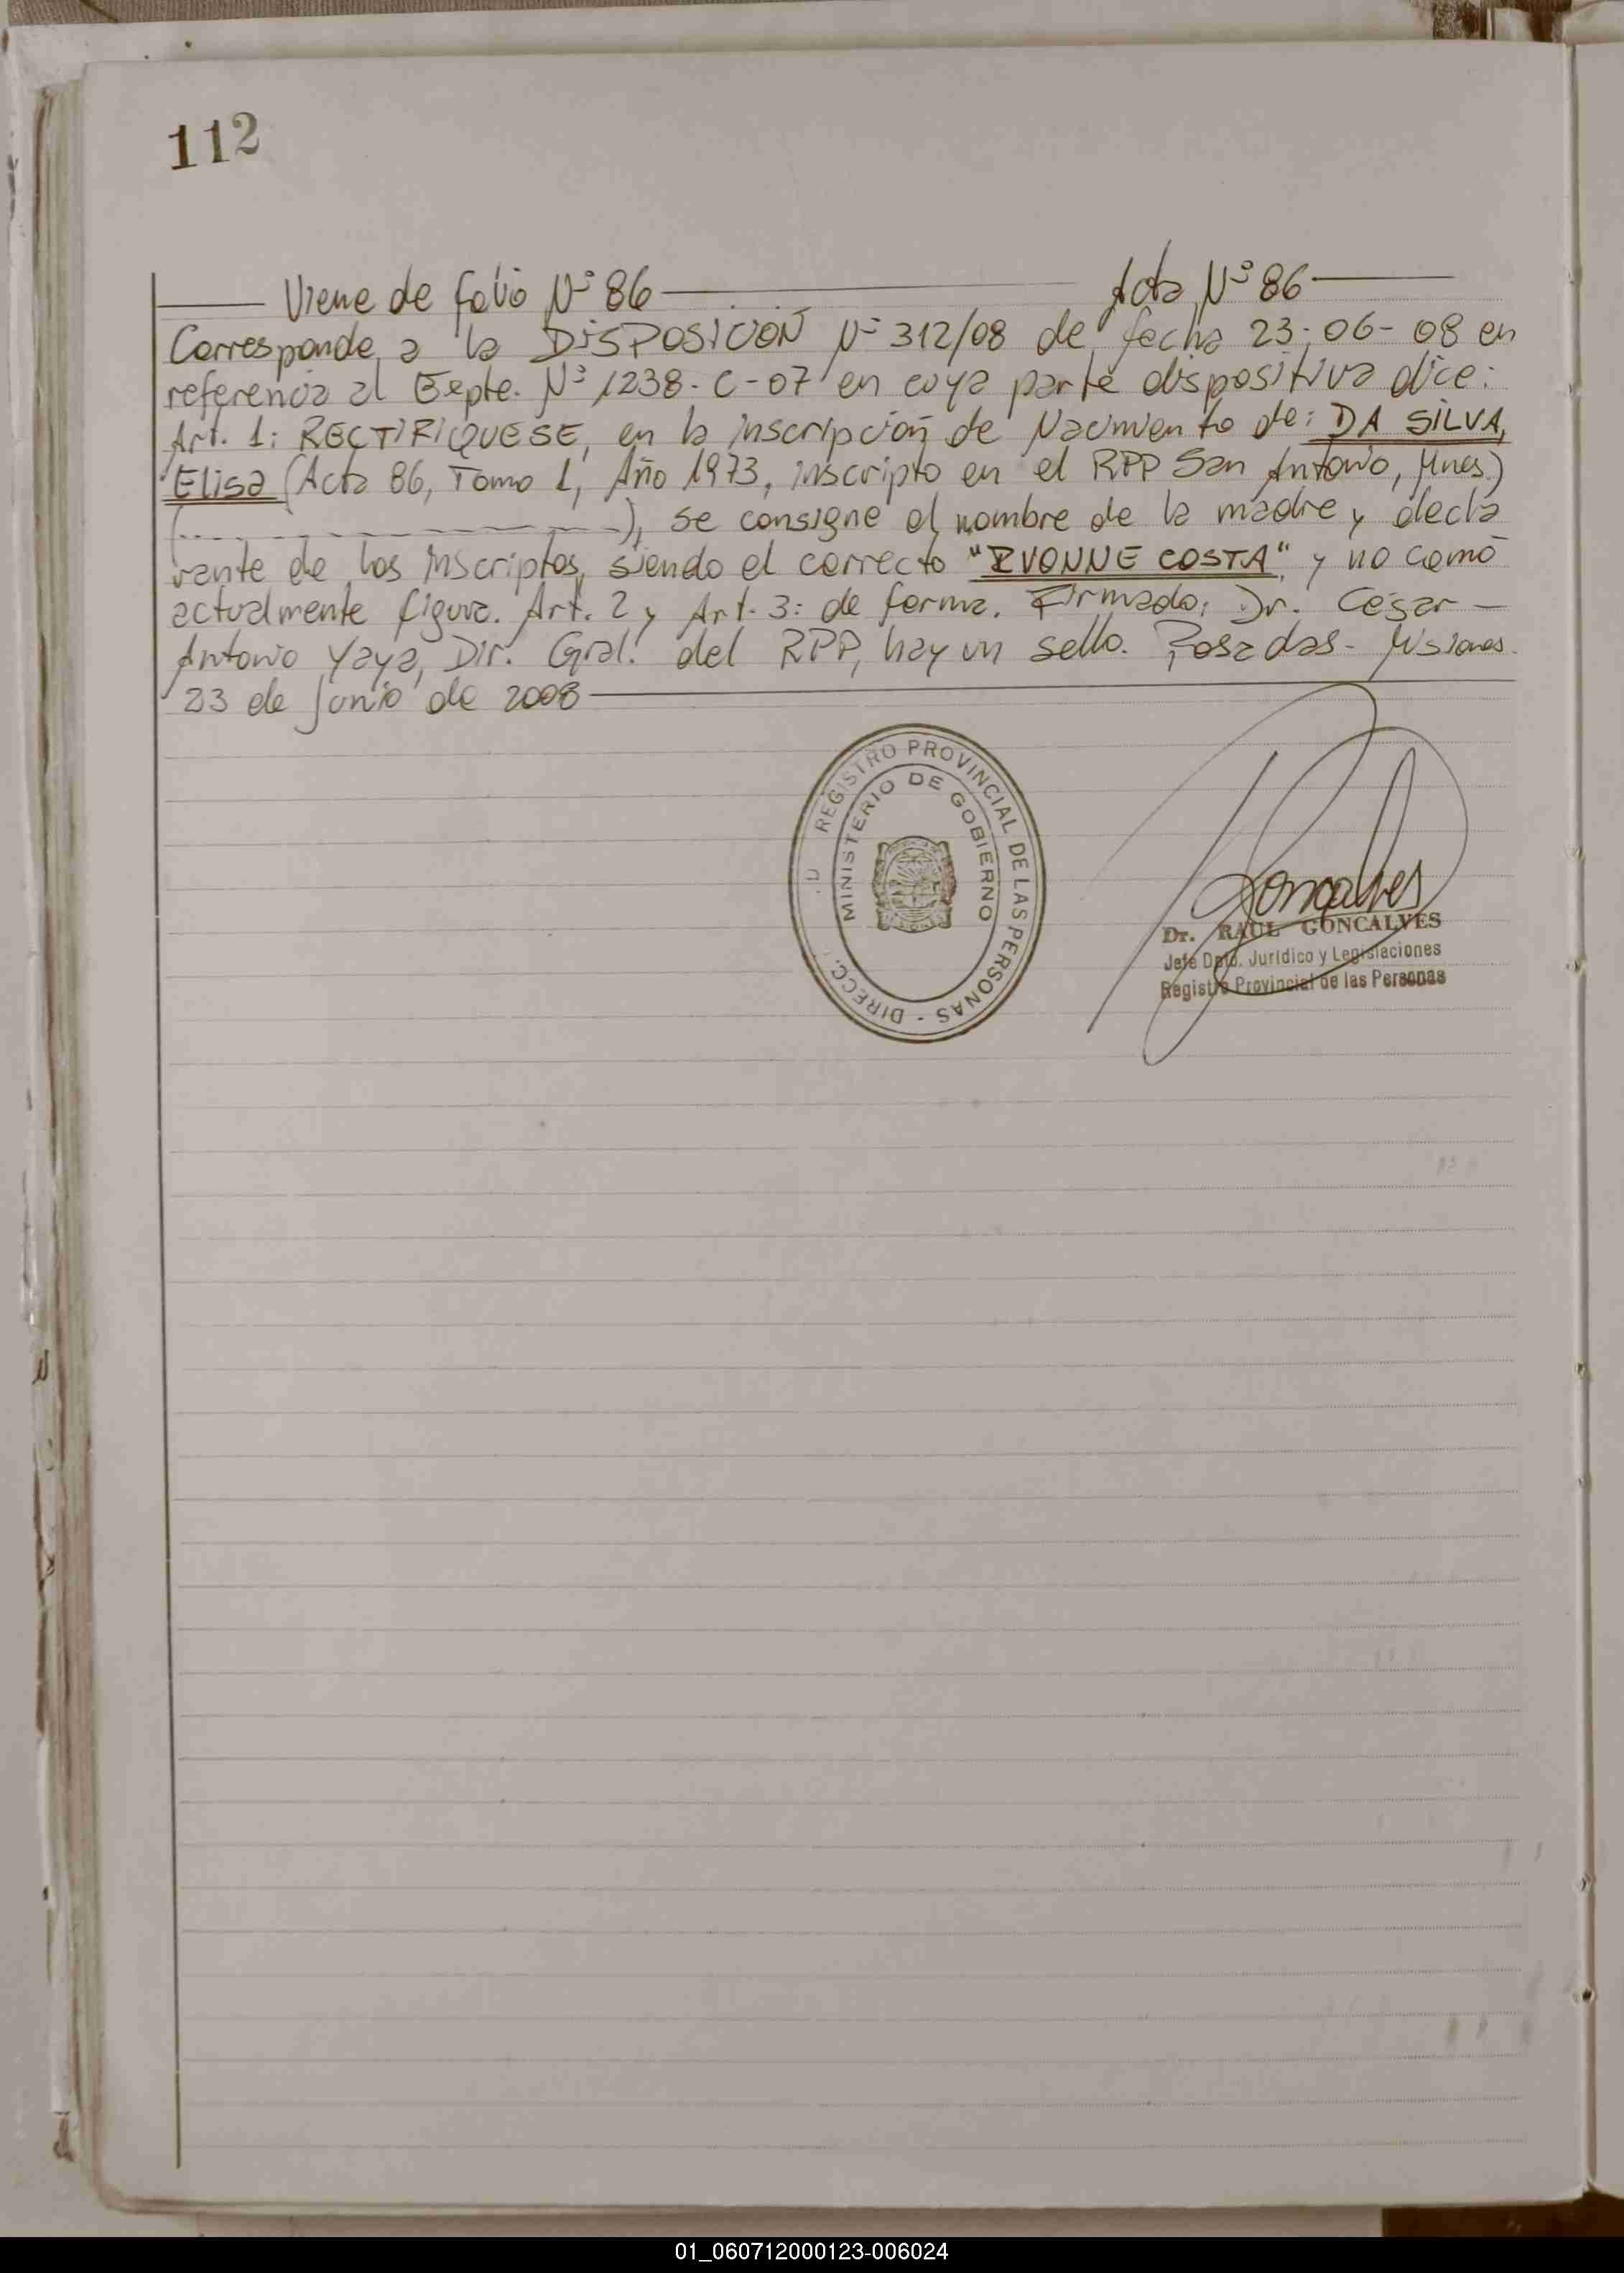 112
Viene de folio Nº 86 Acta Nº 86
Corresponde a la DISPOSICION Nº 312/08 de fecha 23-06-08 en
referencia al Expte. Nº 1238-C-07 en cuya parte dispositiva dice:
Art. 1: RECTIFIQUESE, en la inscripción de Nacimiento de: DA SILVA,
Elisa (Acta 86, Tomo 1, Año 1973, inscripto en el RPP San Antonio, Mnes.)
(... - - - - - - - - -), se consigne el nombre de la madre y decla
rante de los inscriptos, siendo el correcto "IVONNE COSTA" y no como
actualmente figura. Art. 2 y Art. 3: de forma. Firmado: Dr. César -
Antonio Yaya, Dir. Gral. del RPP, hay un sello. Posadas - Misiones.
23 de Junio de 2008
REGISTRO PROVINCIAL DE LAS PERSONAS - DIRECC.
MINISTERIO DE GOBIERNO
Goncalves
Dr. RAUL GONCALVES
Jefe Dpto. Jurídico y Legislaciones
Registro Provincial de las Personas
01_060712000123-006024